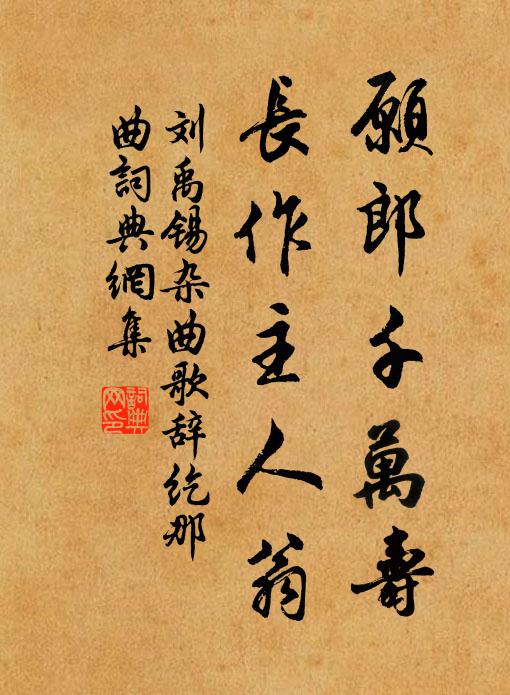 願郎千萬壽
長作主人翁
刘禹锡杂曲歌辞纥那
曲詞典網集
詞典网印